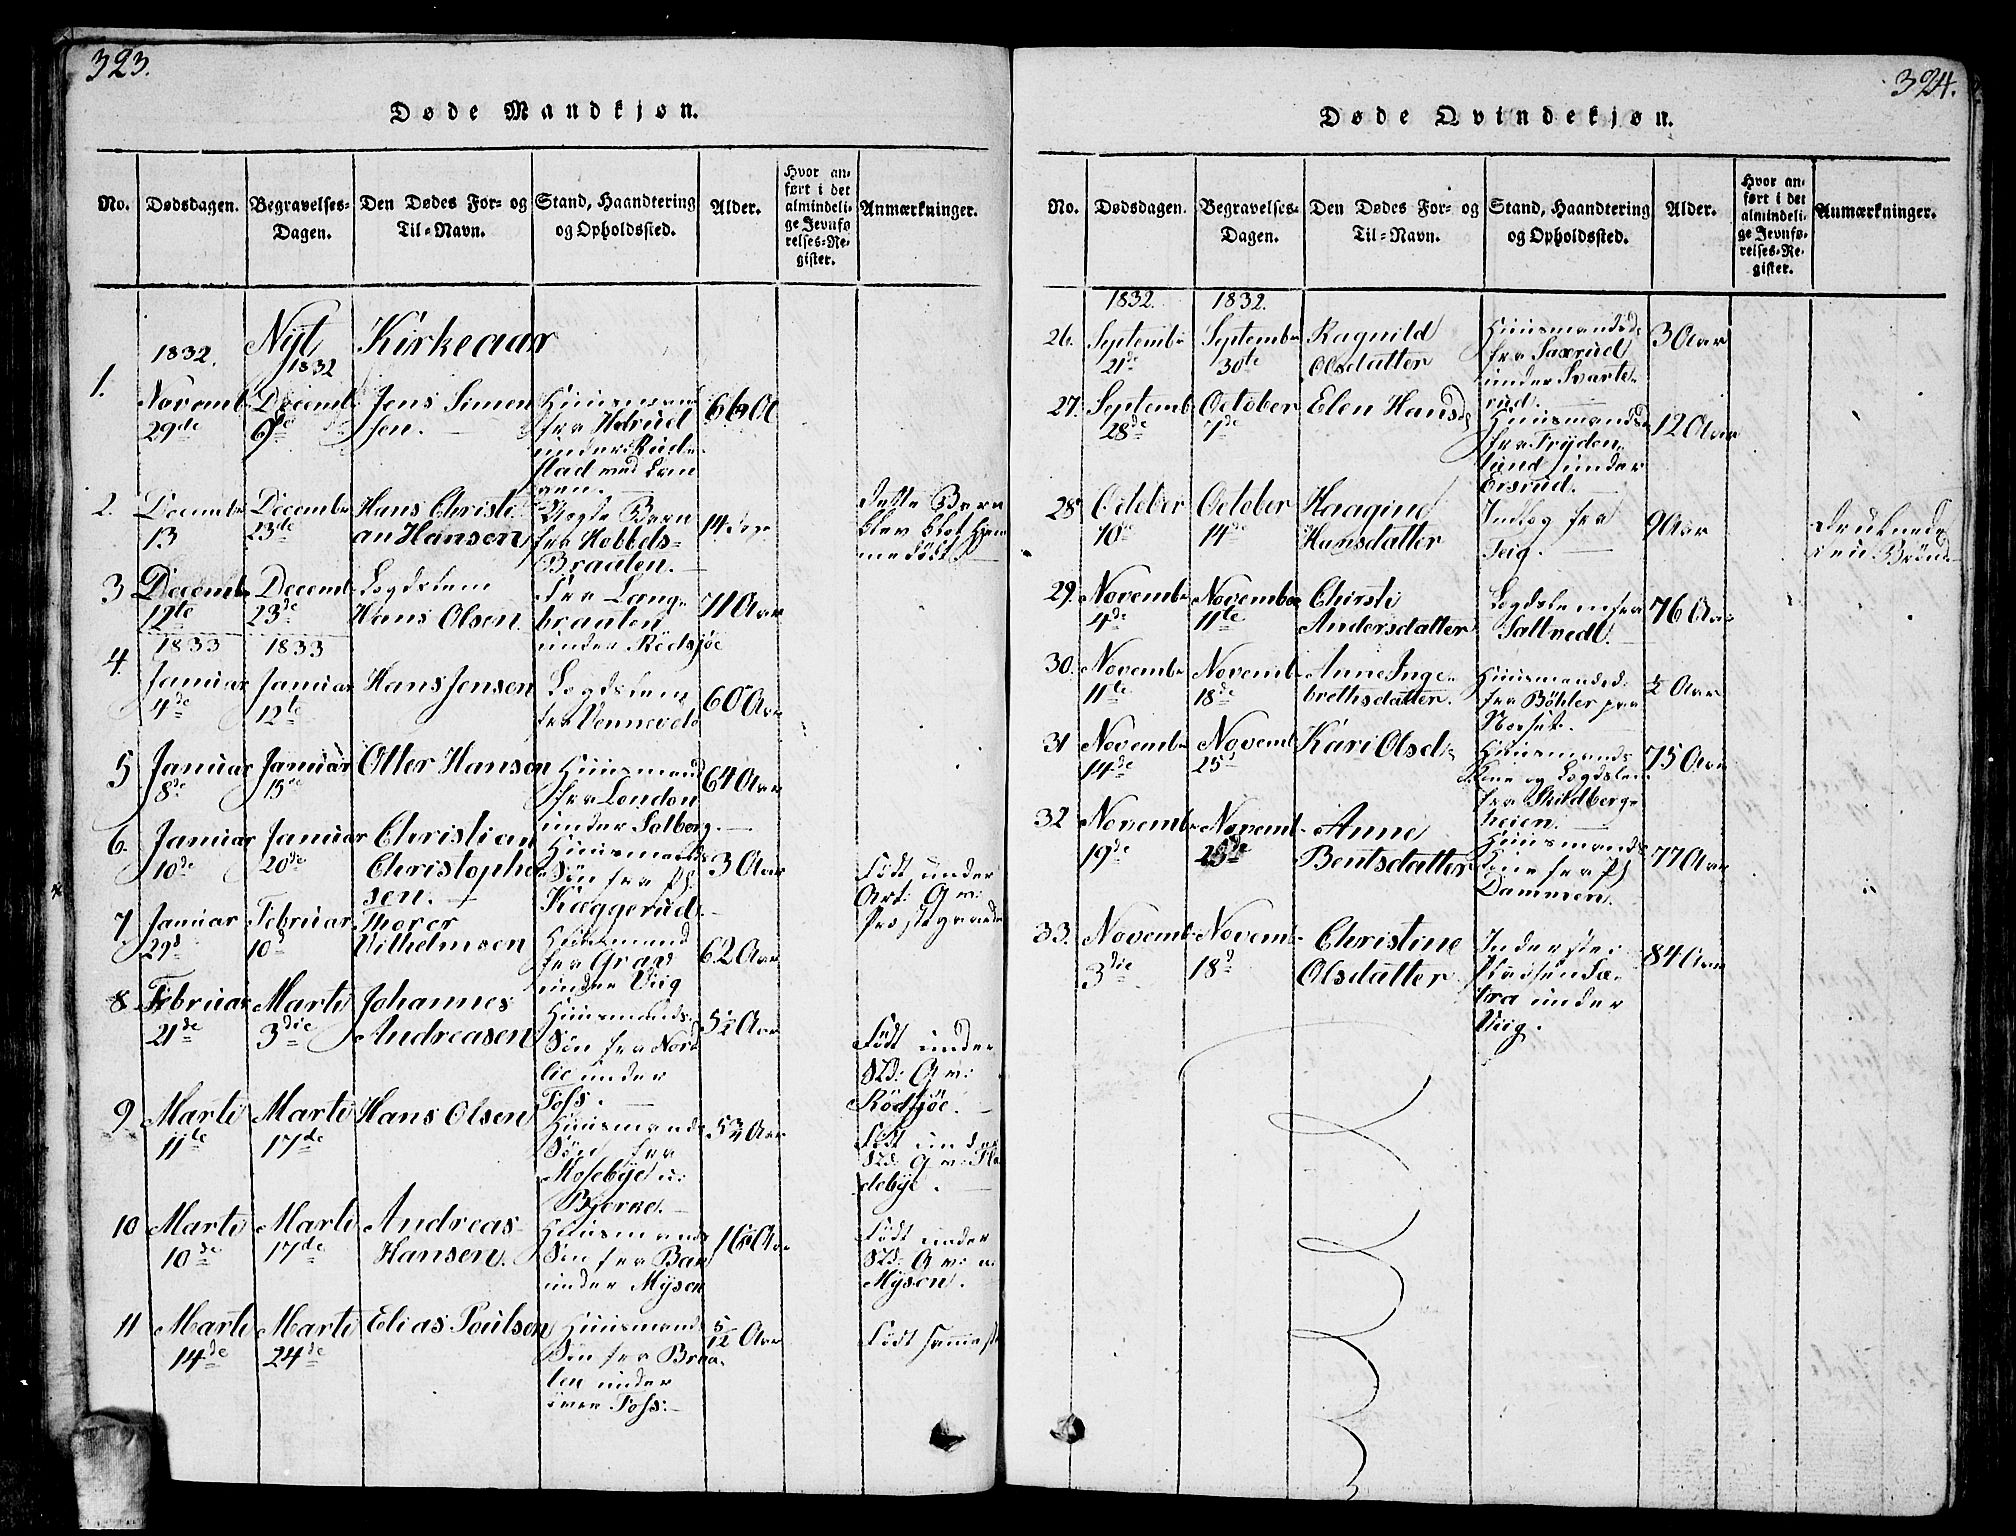 323.
Døde Mandkjøn.
No.
Dødsdagen.
Begravelses-
Dagen.
Den Dødes For- og
Til-Navn.
Stand, Haandtering
og Opholdssted.
Alder.
Hvor an-
ført i det
almindeli-
ge Jevnfø-
relses-Re-
gister.
Anmærkninger.
1832.
Nyt Kirkeaar
1832
1.
Novemb
29de
Decemb
9de
Jens Simen
sen.
Huusmand
fra
under Rud-
stad med
66 A
2.
Decembr
13
Decembr
23de
Hans Christi
an Hansen
Barn
fra Hobbels-
Braaten.
14 dage
dette Barn
blev blot hjem
medöbt
3
Decembr
12te
Decemb
23de
Logdslem
Hans Olsen
fra Lang-
braaten
under Rödsjöe
71 Aar
1833
1833
4.
Januar
4de
Januar
12te
Hans Jensen
Logdslem
fra Venneveld
60 Aar
5
Januar
8de
Januar
15de
Otter Hansen
Huusmand
fra London
under Solberg.
64 Aar
6.
Januar
10de
Januar
20de
Christian
Christophe
sen.
Huusmands
Sön fra Pl.
Kaggerud.
3 Aar
Födt under
Art: A v:
Præstegaarde
7
Januar
29d
Februar
10d
Thorer
Vilhelmsen
Huusmand
fra Graad
under Viig
62 Aar
8
Februar
21de
Marti
3die
Johannes
Andreasen
Huusmands-
Sön fra Nord
lie under
Foss.
5½ Aar
Födt under
A v:
Rödsjöe.
9
Marti
11te
Marti
17de
Hans Olsen
Huusmands
Sön fra
Mosebye u:
Bjerke.
5¾ Aar
Födt under
A v:
debye.
10
Marti
10de
Marti
17de
Andreas
Hansen.
Huusmands
Sön fra
under Mysen
Födt under
A v:
Mysen.
11
Marti
14de
Marti
24de
Elias Poulsen
Huusmands
Sön fra Braa-
ten under
Foss.
5/12 Aar
Födt sammest
324.
Døde Qvindekjøn.
No.
Dødsdagen.
Begravelses-
Dagen.
Den Dødes For- og
Til-Navn.
Stand, Haandtering
og Opholdssted.
Alder.
Hvor an-
ført i det
almindeli-
ge Jevnfø-
relses-Re-
gister.
Anmærkninger.
1832.
1832.
26.
Septembr
21de
Septembr
30te
Ragnild
Olsdatter
Huusmandsd.
fra Saxrud
under Svarte-
rud.
3 Aar
27.
Septemb
28de
October
7de
Elen Hansd
Huusmandsd.
fra Fryden-
lund under
Eisrud.
12 Aar
28
October
10de
October
14de
Haagine
Hansdatter
Indlog fra
Teig.
9 Aar
Druknede
i en Brönd
29.
Novembr
4de
November
11te
Chirsti
Andersdatter
Logdslem fra
Saltvedt.
76 Aar
30.
Novembr
11te
Novemb
18de
Anne Inge-
brethsdatter.
Huusmandsd.
fra Böhler paa
Norset.
½ Aar
31
Novembr
14de
Novemb
25d
Kari Olsd
Huusmands
Kone og Logdslem
fra Skildberg-
heien.
75 Aar
32
Novembr
19de
Novemb
25de
Anne
Bentsdatter
Huusmands
Kone fra Pl
Dammen.
77 Aar
33.
Novemb
3die
Novemb
18d
Christine
Olsdatter
Inderste i
Pladsen Sæ-
tra under
Viig.
84 Aar